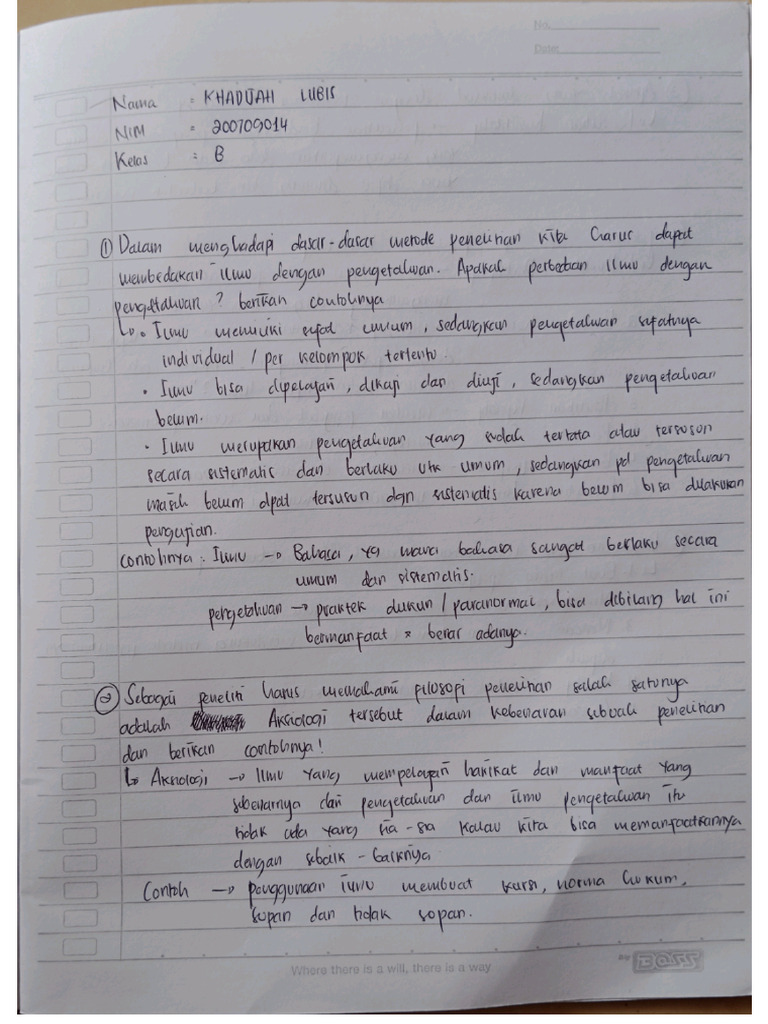 No.
Date:
Nama : KHADIJAH LUBIS
NIM : 200709014
Kelas : B
① Dalam menghadapi dasar-dasar metode penelitian kita harus dapat
membedakan ilmu dengan pengetahuan. Apakah perbedaan ilmu dengan
pengetahuan ? berikan contohnya
↳ • Ilmu memiliki sifat umum, sedangkan pengetahuan sifatnya
individual / per kelompok tertentu.
• Ilmu bisa dipelajari, dikaji dan diuji, sedangkan pengetahuan
belum.
• Ilmu merupakan pengetahuan yang sudah tertata atau tersusun
secara sistematis dan berlaku utk umum, sedangkan pd pengetahuan
masih belum dpat tersusun dgn sistematis karena belum bisa dilakukan
pengujian.
Contohnya : Ilmu → Bahasa, yg mana bahasa sangat berlaku secara
umum dan sistematis.
pengetahuan → praktek dukun / paranormal, bisa dibilang hal ini
bermanfaat × benar adanya.
② Sebagai peneliti harus memahami filosofi penelitian salah satunya
adalah Aksiologi tersebut dalam kebenaran sebuah penelitian
dan berikan contohnya!
↳ Aksiologi → Ilmu yang mempelajari hakikat dan manfaat yang
sebenarnya dari pengetahuan dan ilmu pengetahuan itu
tidak ada yang sia-sia kalau kita bisa memanfaatkannya
dengan sebaik-baiknya.
Contoh → penggunaan ilmu membuat kursi, norma hukum,
sopan dan tidak sopan.
Where there is a will, there is a way
By BOSS